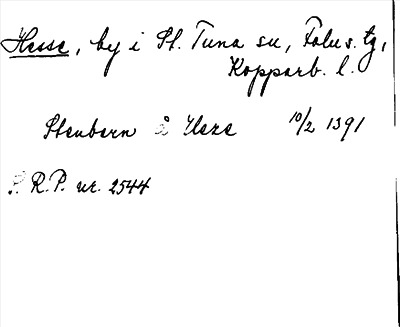 Hesse, by i St. Tuna sn, Falu s. tg,
Kopparb. l.
Stenbern å Hese 10/2 1391
S. R.P. nr. 2544